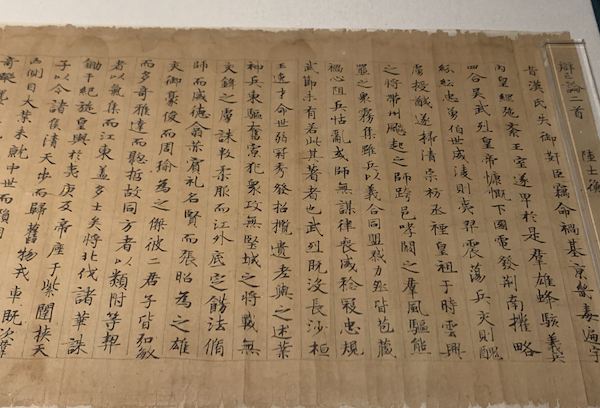 辯亡論二首 陸士衡
昔漢氏失御姧臣竊命禍基京畿毒遍宇
內皇綱弛紊王室遂卑於是羣雄蜂駭義兵
四合吳武烈皇帝慷慨下國電發荊南權略
紛紜忠勇伯世威稜則夷羿震蕩兵交則醜
虜授馘遂掃清宗祊烝禋皇祖于時雲興
之將帶州飈起之師跨邑哮闞之羣風驅熊
羆之衆霧集雖兵以義合同盟戮力然皆苞藏
禍心阻兵怙亂或師無謀律喪威稔寇忠規
武節未有若此其著者也武烈既沒長沙桓
王逸才命世弱冠秀發招攬遺老與之述業
神兵東驅奮寡犯衆攻無堅城之將戰無
交鋒之虜誅叛柔服而江外底定飭法脩
師而威德翕赫賓禮名賢而張昭為之雄
交御豪俊而周瑜為之傑彼二君子皆弘敏
而多奇雅達而聰哲故同方者以類附等契
者以氣集而江東蓋多士矣將北伐諸華誅
鉏干紀旋皇輿於夷庚反帝座于紫闥挾天
子以令諸侯清天步而歸舊物戎車既次羣
凶側目大業未就中世而殞用
奇蹤襲